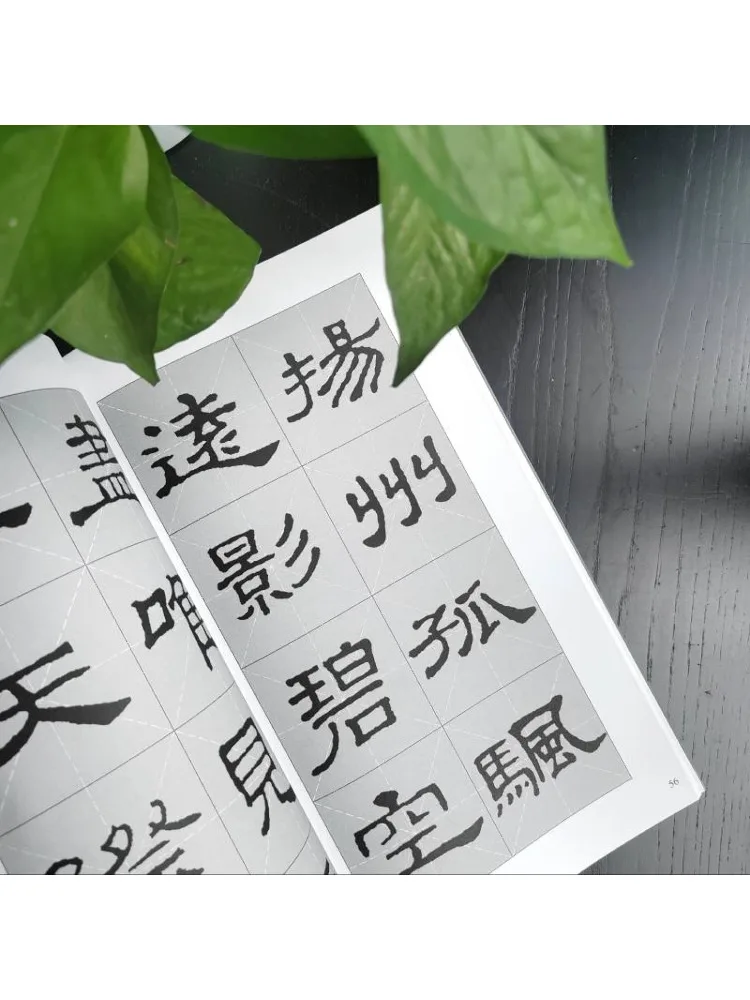 揚州孤颿
遠影碧空
盡唯見
天際
56